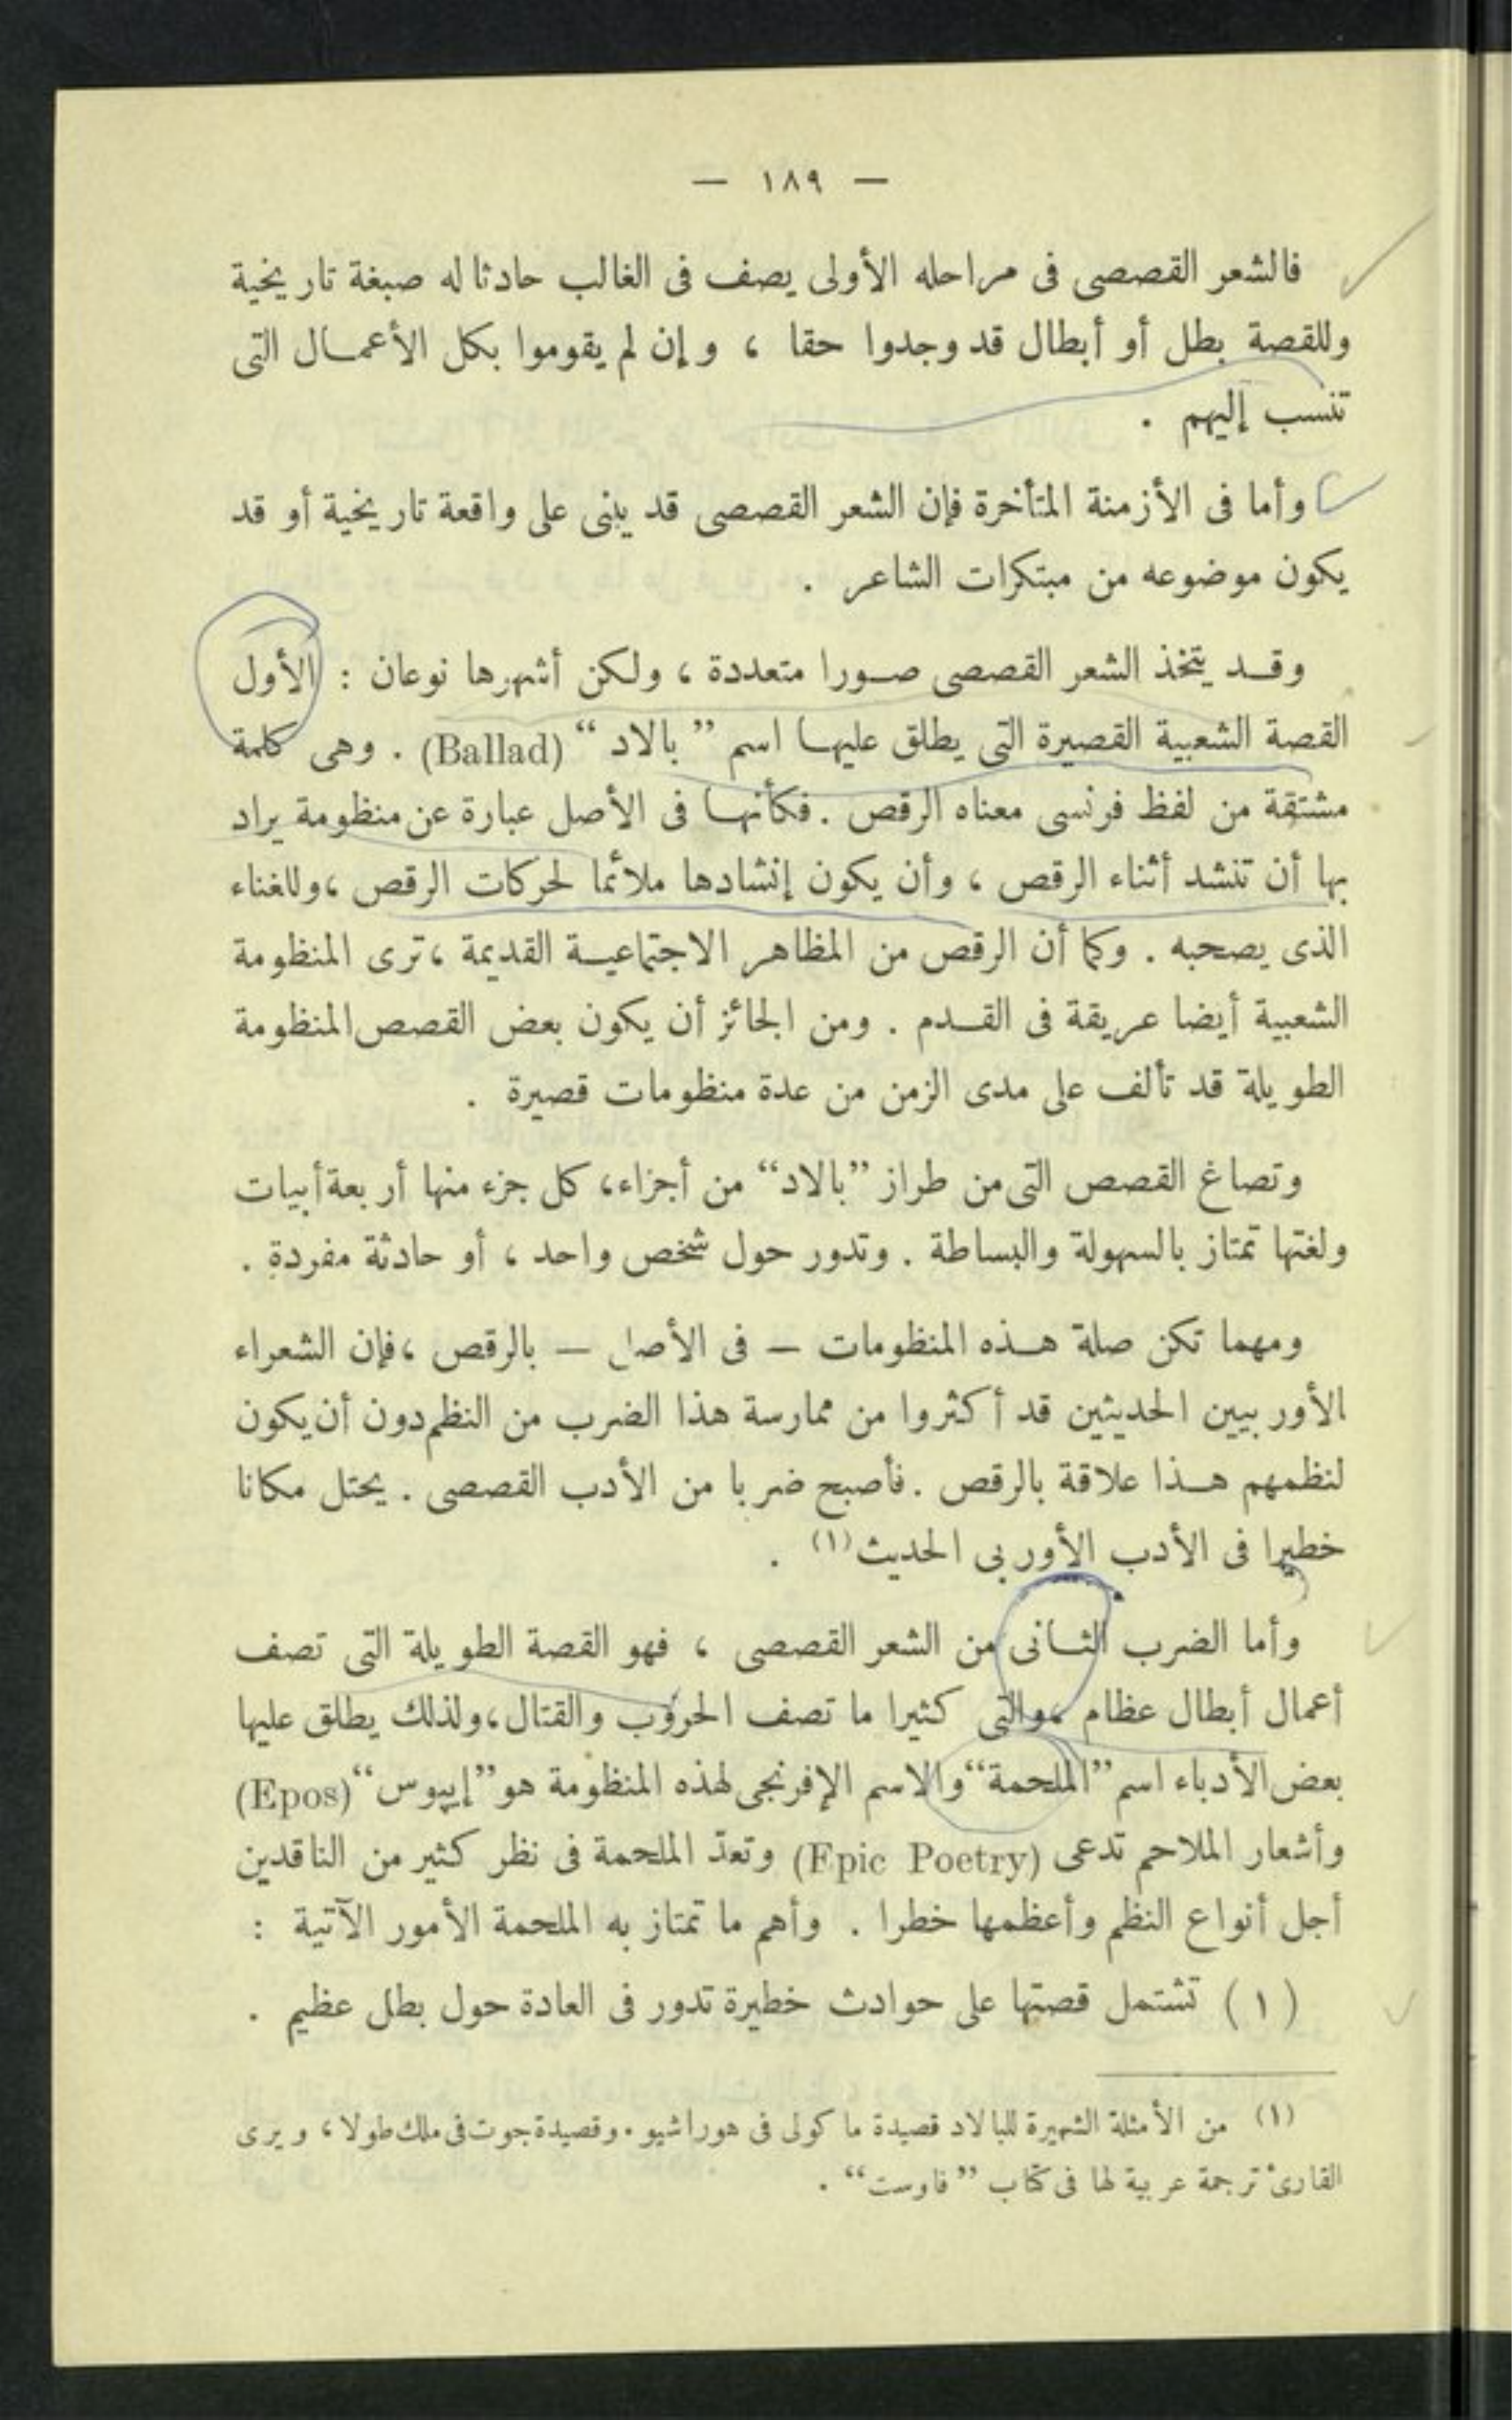 — ١٨٩ —
فالشعر القصصى فى مراحله الأولى يصف فى الغالب حادثا له صبغة تاريخية
وللقصة بطل أو أبطال قد وجدوا حقا ، وإن لم يقوموا بكل الأعمال التى
تنسب إليهم .
وأما فى الأزمنة المتأخرة فإن الشعر القصصى قد يبنى على واقعة تاريخية أو قد
يكون موضوعه من مبتكرات الشاعر .
وقد يتخذ الشعر القصصى صورا متعددة ، ولكن أشهرها نوعان : الأول
القصة الشعبية القصيرة التى يطلق عليها اسم ”بالاد“ (Ballad) . وهى كلمة
مشتقة من لفظ فرنسى معناه الرقص . فكأنها فى الأصل عبارة عن منظومة يراد
بها أن تنشد أثناء الرقص ، وأن يكون إنشادها ملائما لحركات الرقص ، وللغناء
الذى يصحبه . وكما أن الرقص من المظاهر الاجتماعية القديمة ، ترى المنظومة
الشعبية أيضا عريقة فى القدم . ومن الجائز أن يكون بعض القصص المنظومة
الطويلة قد تألف على مدى الزمن من عدة منظومات قصيرة .
وتصاغ القصص التى من طراز ”بالاد“ من أجزاء، كل جزء منها أربعة أبيات
ولغتها تمتاز بالسهولة والبساطة . وتدور حول شخص واحد ، أو حادثة مفردة .
ومهما تكن صلة هذه المنظومات — فى الأصل — بالرقص ، فإن الشعراء
الأوربيين الحديثين قد أكثروا من ممارسة هذا الضرب من النظم دون أن يكون
لنظمهم هذا علاقة بالرقص . فأصبح ضربا من الأدب القصصى . يحتل مكانا
خطيرا فى الأدب الأوربى الحديث (١) .
وأما الضرب الثانى من الشعر القصصى ، فهو القصة الطويلة التى تصف
أعمال أبطال عظام ، والتى كثيرا ما تصف الحروب والقتال، ولذلك يطلق عليها
بعض الأدباء اسم ”الملحمة“ والاسم الإفرنجى لهذه المنظومة هو ”إيپوس“ (Epos)
وأشعار الملاحم تدعى (Epic Poetry) وتعدّ الملحمة فى نظر كثير من الناقدين
أجل أنواع النظم وأعظمها خطرا . وأهم ما تمتاز به الملحمة الأمور الآتية :
(١) تشتمل قصتها على حوادث خطيرة تدور فى العادة حول بطل عظيم .
(١) من الأمثلة الشهيرة للبالاد قصيدة ماكولى فى هوراشيو . وقصيدة جوت فى ملك طولا ، ويرى
القارئ ترجمة عربية لها فى كتاب ”فاوست“ .